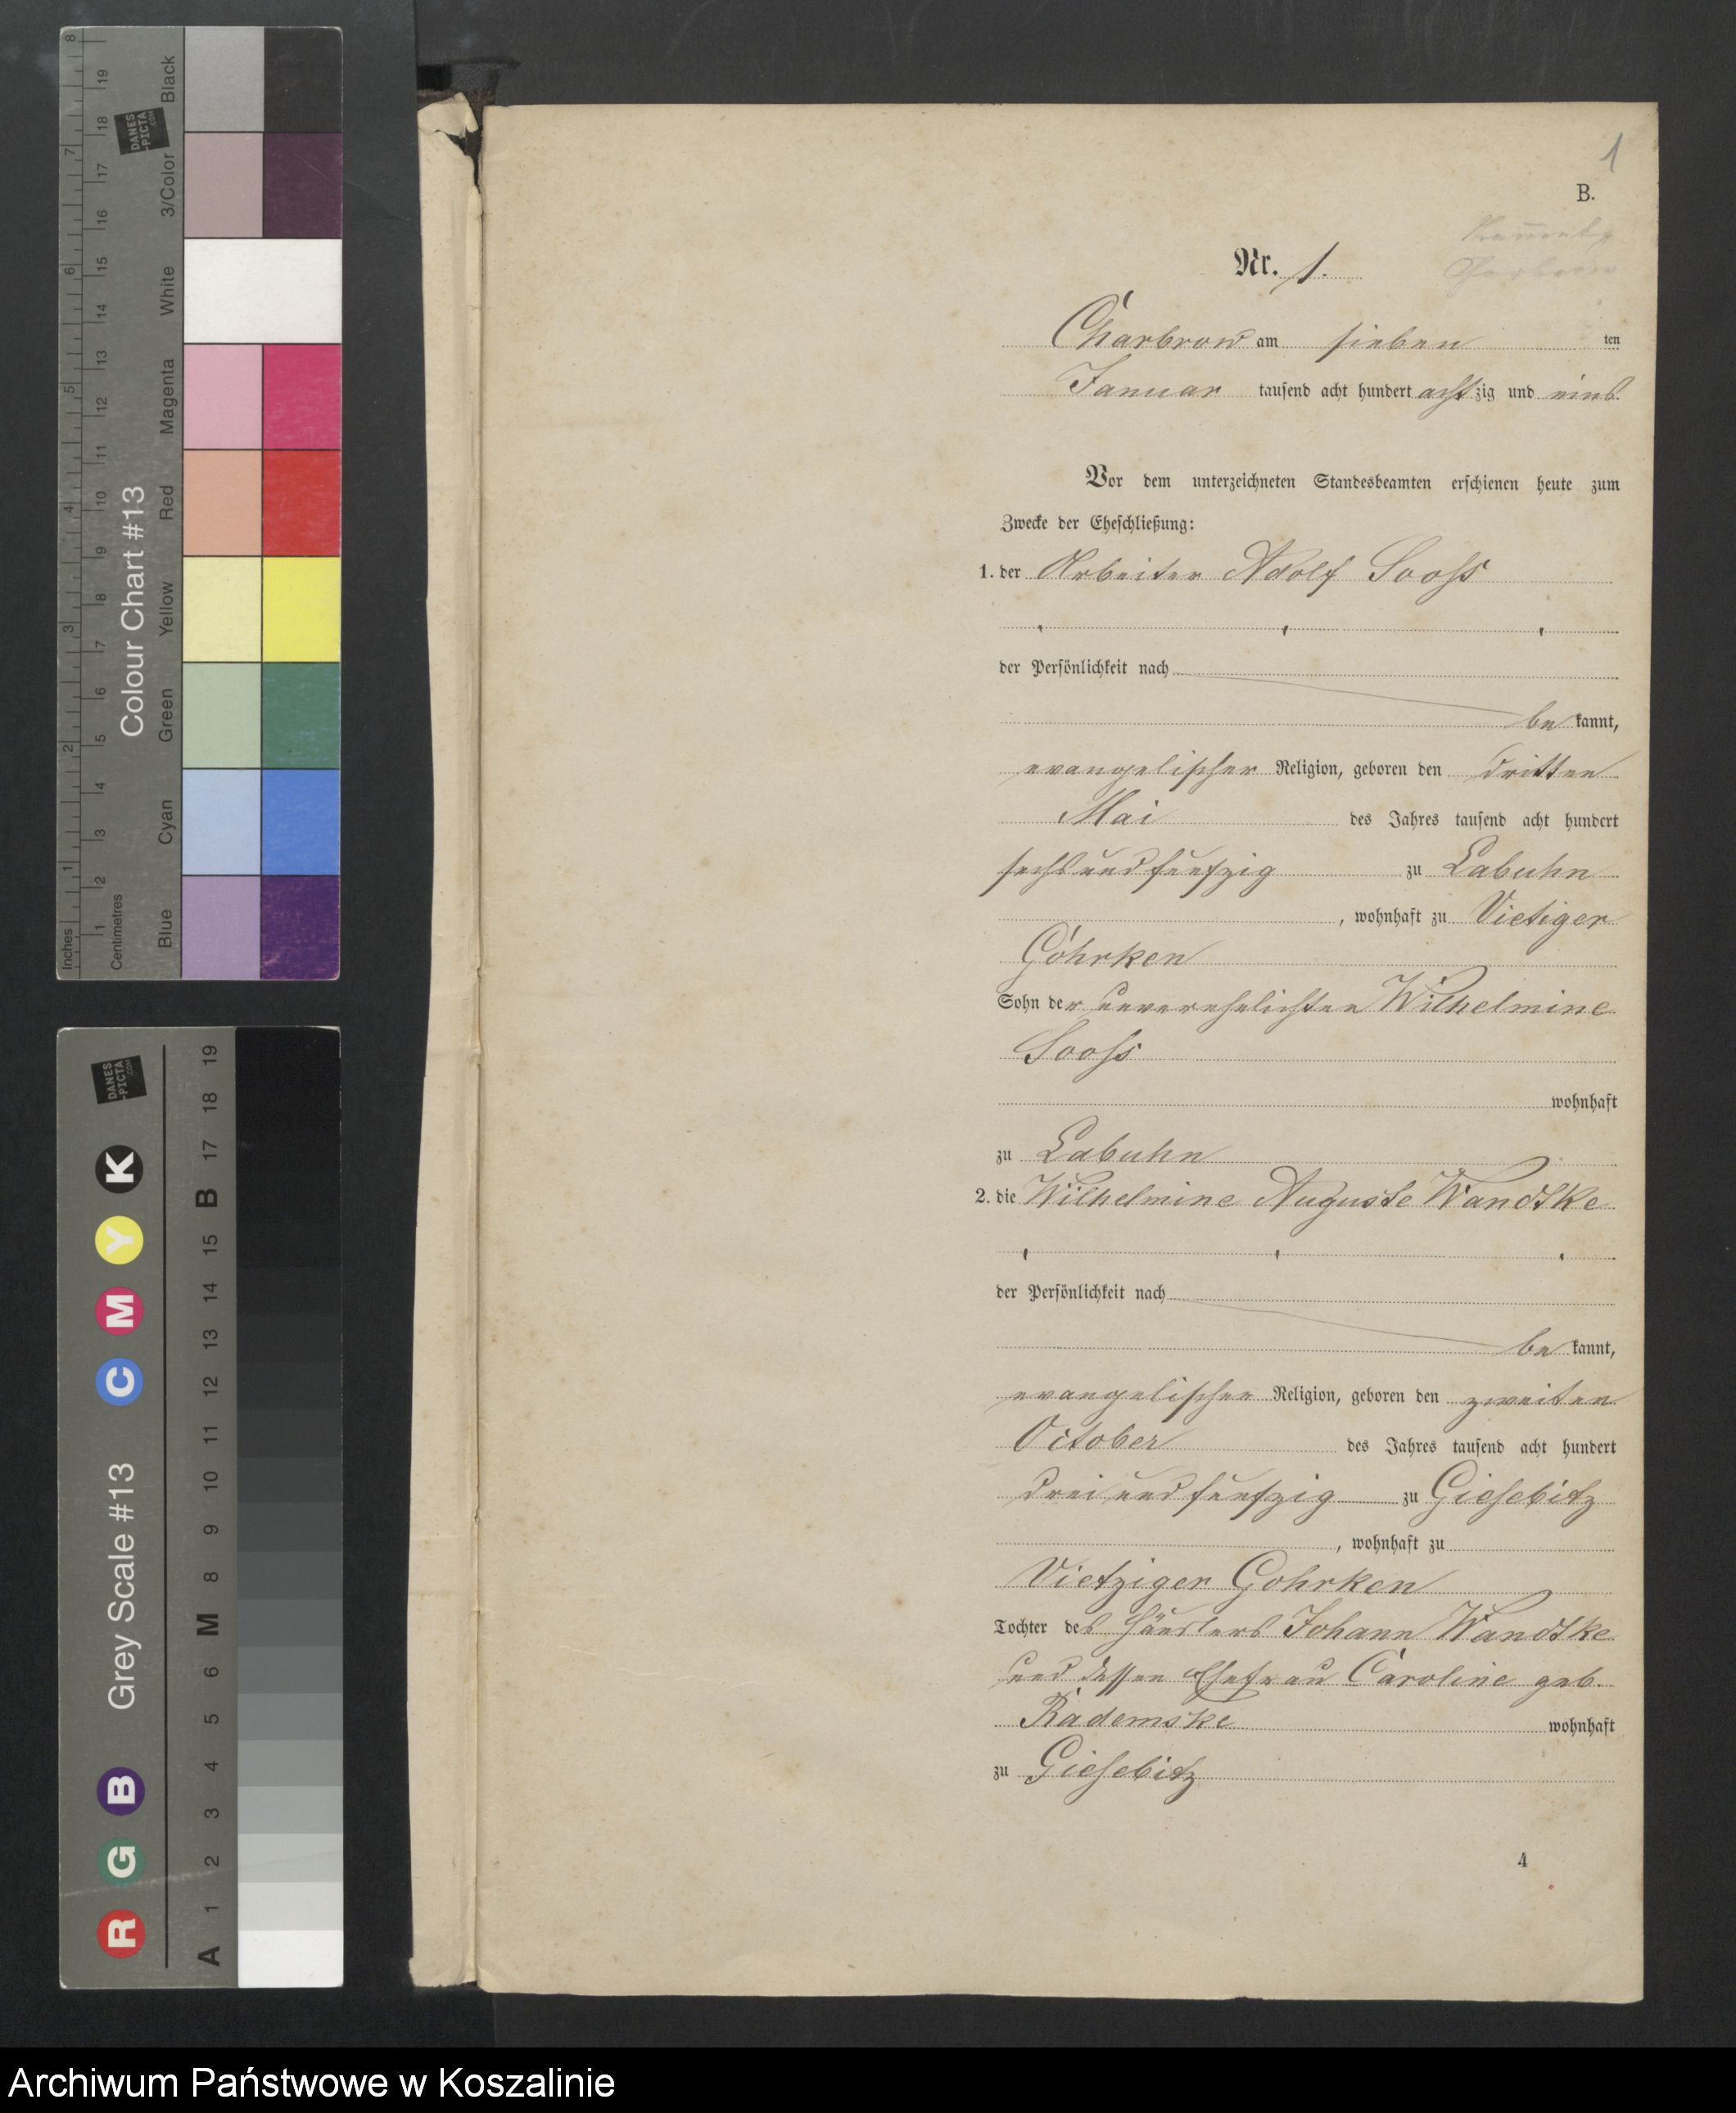 1
B.
Nr. 1.
Charbrow am sieben ten
Januar tausend acht hundert achtzig und eins
Vor dem unterzeichneten Standesbeamten erschienen heute zum
Zwecke der Eheschließung:
1. der Arbeiter Adolf Sooss
der Persönlichkeit nach
be kannt,
evangelischer Religion, geboren den dritten
Mai des Jahres tausend acht hundert
sechs und funfzig zu Labuhn
, wohnhaft zu Vietziger
Gohrken
Sohn der unverehelichten Wilhelmine
Sooss
wohnhaft
zu Labuhn
2. die Wilhelmine Auguste Wandtke
der Persönlichkeit nach
be kannt,
evangelischer Religion, geboren den zweiten
October des Jahres tausend acht hundert
drei und funfzig zu Giesebitz
, wohnhaft zu
Vietziger Gohrken
Tochter des Häuslers Johann Wandtke
und dessen Ehefrau Caroline geb.
Rademske wohnhaft
zu Giesebitz
4
Colour Chart #13
Blue Cyan Green Yellow Red Magenta White 3/Color Black
Inches 1 2 3 4 5 6 7 8
Centimetres 1 2 3 4 5 6 7 8 9 10 11 12 13 14 15 16 17 18 19
DANES-PICTA.COM
Grey Scale #13
R G B C M Y K
A 1 2 3 4 5 6 M 8 9 10 11 12 13 14 15 B 17 18 19
DANES-PICTA.COM
Archiwum Państwowe w Koszalinie